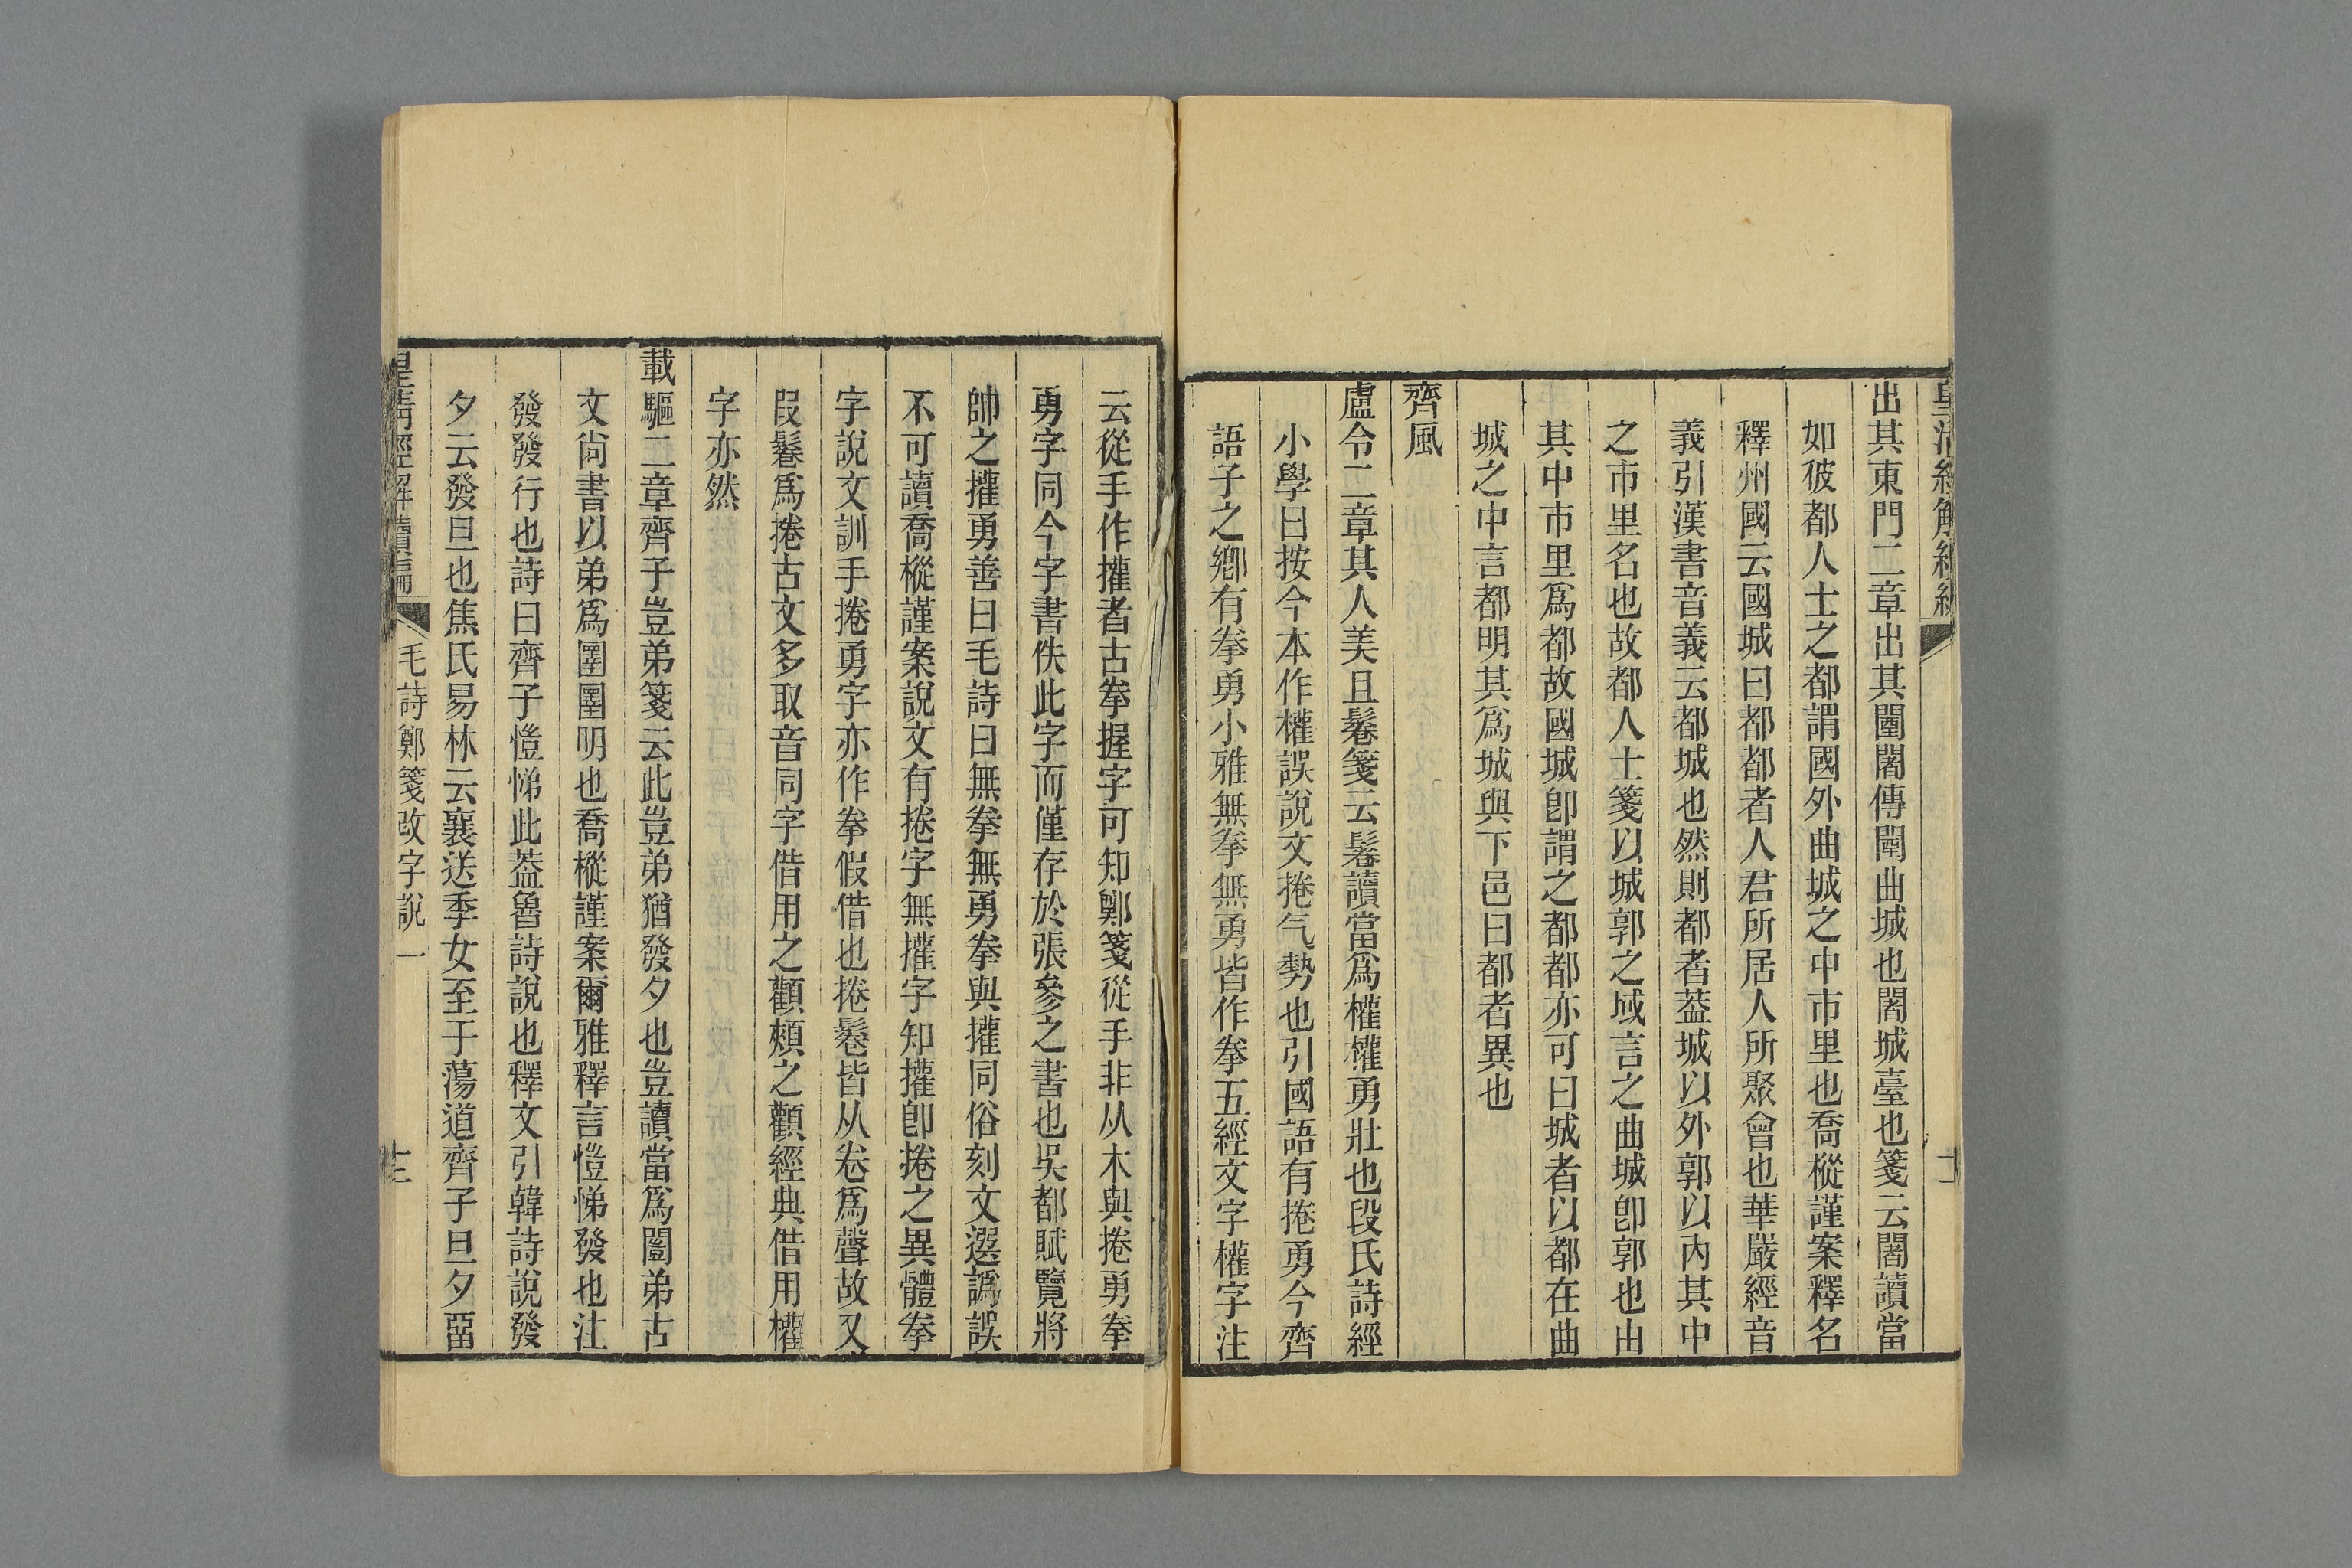 出其東門二章出其闉闍傳闉曲城也闍城臺也箋云闍讀當
如彼都人士之都謂國外曲城之中市里也喬樅謹案釋名
釋州國云國城曰都都者人君所居人所聚會也華嚴經音
義引漢書音義云都城也然則都者葢城以外郭以內其中
之市里名也故都人士箋以城郭之域言之曲城卽郭也由
其中市里爲都故國城卽謂之都都亦可曰城者以都在曲
城之中言都明其爲城與下邑曰都者異也
齊風
盧令二章其人美且鬈箋云鬈讀當爲權權勇壯也段氏詩經
小學曰按今本作權誤說文捲气勢也引國語有捲勇今齊
語子之鄉有拳勇小雅無拳無勇皆作拳五經文字權字注
云從手作攉者古拳握字可知鄭箋從手非从木與捲勇拳
勇字同今字書佚此字而僅存於張參之書也吳都賦覽將
帥之攉勇善曰毛詩曰無拳無勇拳與攉同俗刻文選譌誤
不可讀喬樅謹案說文有捲字無攉字知攉卽捲之異體拳
字說文訓手捲勇字亦作拳假借也捲鬈皆从卷爲聲故又
叚鬈爲捲古文多取音同字借用之顴頰之顴經典借用權
字亦然
載驅二章齊子豈弟箋云此豈弟猶發夕也豈讀當爲闓弟古
文尙書以弟爲圛圛明也喬樅謹案爾雅釋言愷悌發也注
發發行也詩曰齊子愷悌此葢魯詩說也釋文引韓詩說發
夕云發旦也焦氏易林云襄送季女至于蕩道齊子旦夕畱
皇淸經解續編 毛詩鄭箋改字說一 十二